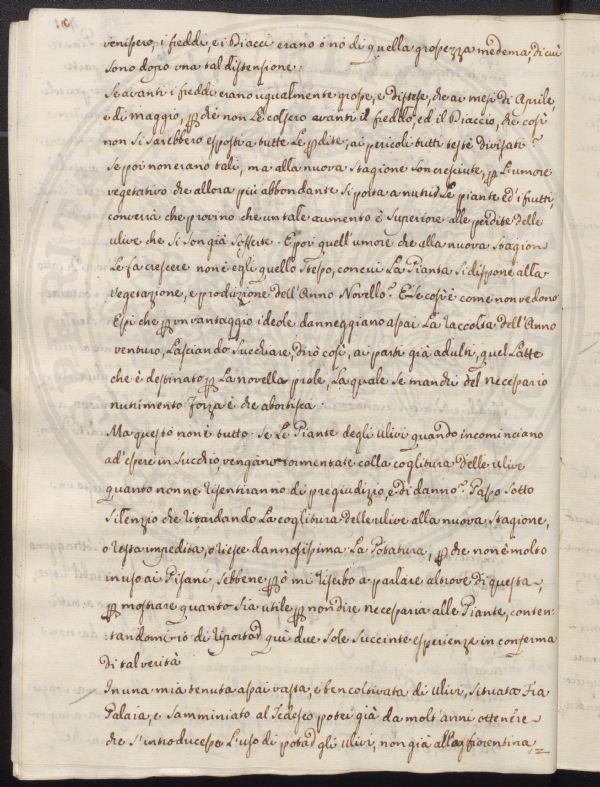 venissero, i freddi, e i Diacci erano ó nó di quella grossezza medema, di cui
sono dopo una tal distensione.
Se avanti i freddi erano ugualmente grosse, e distese, che ai mesi di Aprile,
e di maggio, p che non Le colsero avanti il freddo, ed il Diaccio, che così
non si sarebbero esposte a tutte Le pdite, ai pericoli tutti testé divisati?
Se poi non erano tali, ma alla nuova stagione son cresciute, p L'umore
vegetativo che allora più abbondante si porta a nutrir Le piante ed i frutti,
converrà che provino che un tale aumento è superiore alle perdite delle
ulive che si son già sofferte. E poi quell'umore che alla nuova stagione
Le fa crescere non è egli quello stesso, con cui La Pianta si dispone alla
vegetazione, e produzione dell'Anno Novello? E se così è come non vedono
Essi che p un vantaggio ideale danneggiano assai La raccolta dell'Anno
venturo, Lasciando succhiare, dirò così, ai parti già adulti, quel Latte
che è destinato p La novella prole, La quale se manchi del necessario
nutrimento forza è che abortisca.
Ma questo non è tutto. Se Le Piante degli ulivi quando incominciano
ad essere in succhio, vengano tormentate colla coglitura delle ulive
quanto non ne risentiranno di pregiudizio, e di danno? Passo sotto
silenzio che ritardando La coglitura delle ulive alla nuova stagione,
o resta impedita, o riesce dannosissima La Potatura, p che non è molto
in uso ai Pisani, sebbene pò mi riserbo a parlare altrove di questa,
p mostrare quanto sia utile p non dire necessaria alle Piante, conten-
tandomi io di riportar qui due sole succinte esperienze in conferma
di tal verità
In una mia tenuta assai vasta, e ben coltivata di ulivi, situata Fra
Palaia, e Samminiato al Tedesco potei già da molt'anni ottenere
che s'introducesse L'uso di potar gli ulivi, non già alla fiorentina